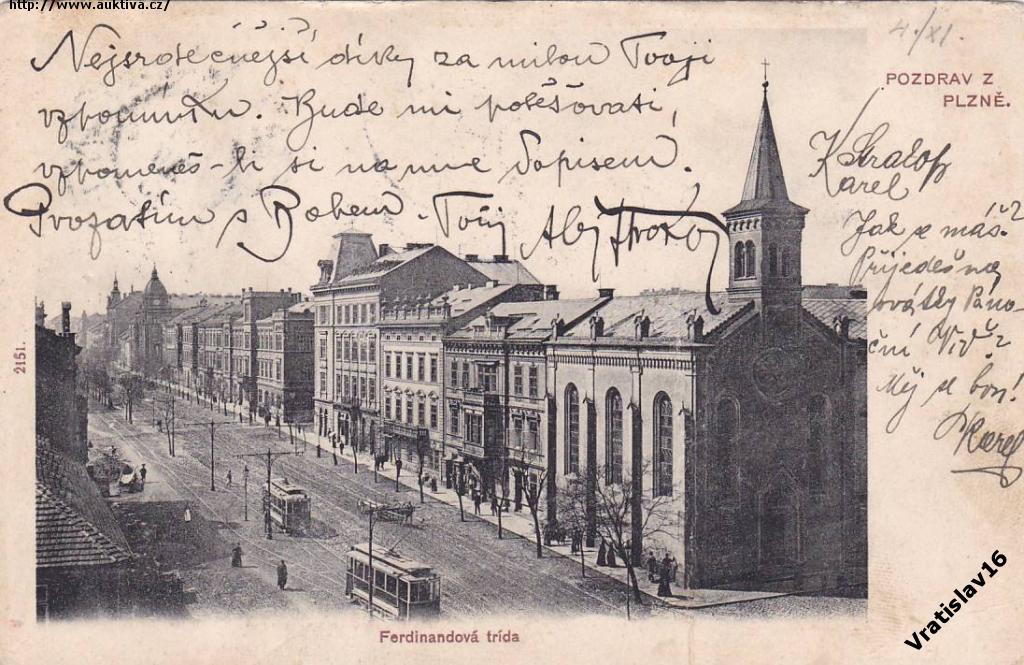 http://www.auktiva.cz/
4./XI.
Nejsrdečnější díky za milou Tvoji
vzpomínku. Bude mi potěšovati,
vzpomeneš-li si na mne dopisem.
Prozatím s Bohem. Tvůj
POZDRAV Z
PLZNĚ.
Karel
Jak se máš?
Přijedeš na
svátky
Měj se
Karel
2151.
Ferdinandová trída
Vratislav16